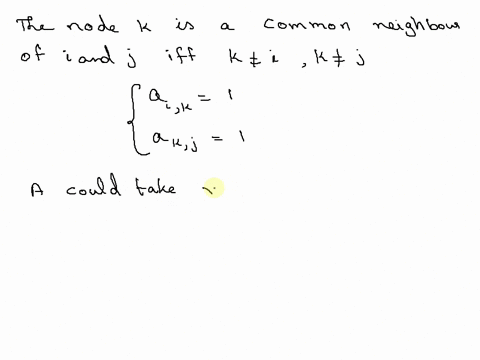 The node k is a common neighbour
of i and j iff k ≠ i , k ≠ j
a_{i,k} = 1
a_{k,j} = 1
A could take